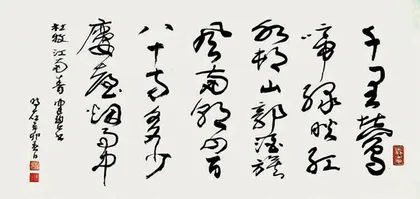 千里鶯
啼緑映紅
水村山郭酒旗
風南朝四百
八十寺多少
樓臺烟雨中
杜牧江南春
辛卯春日